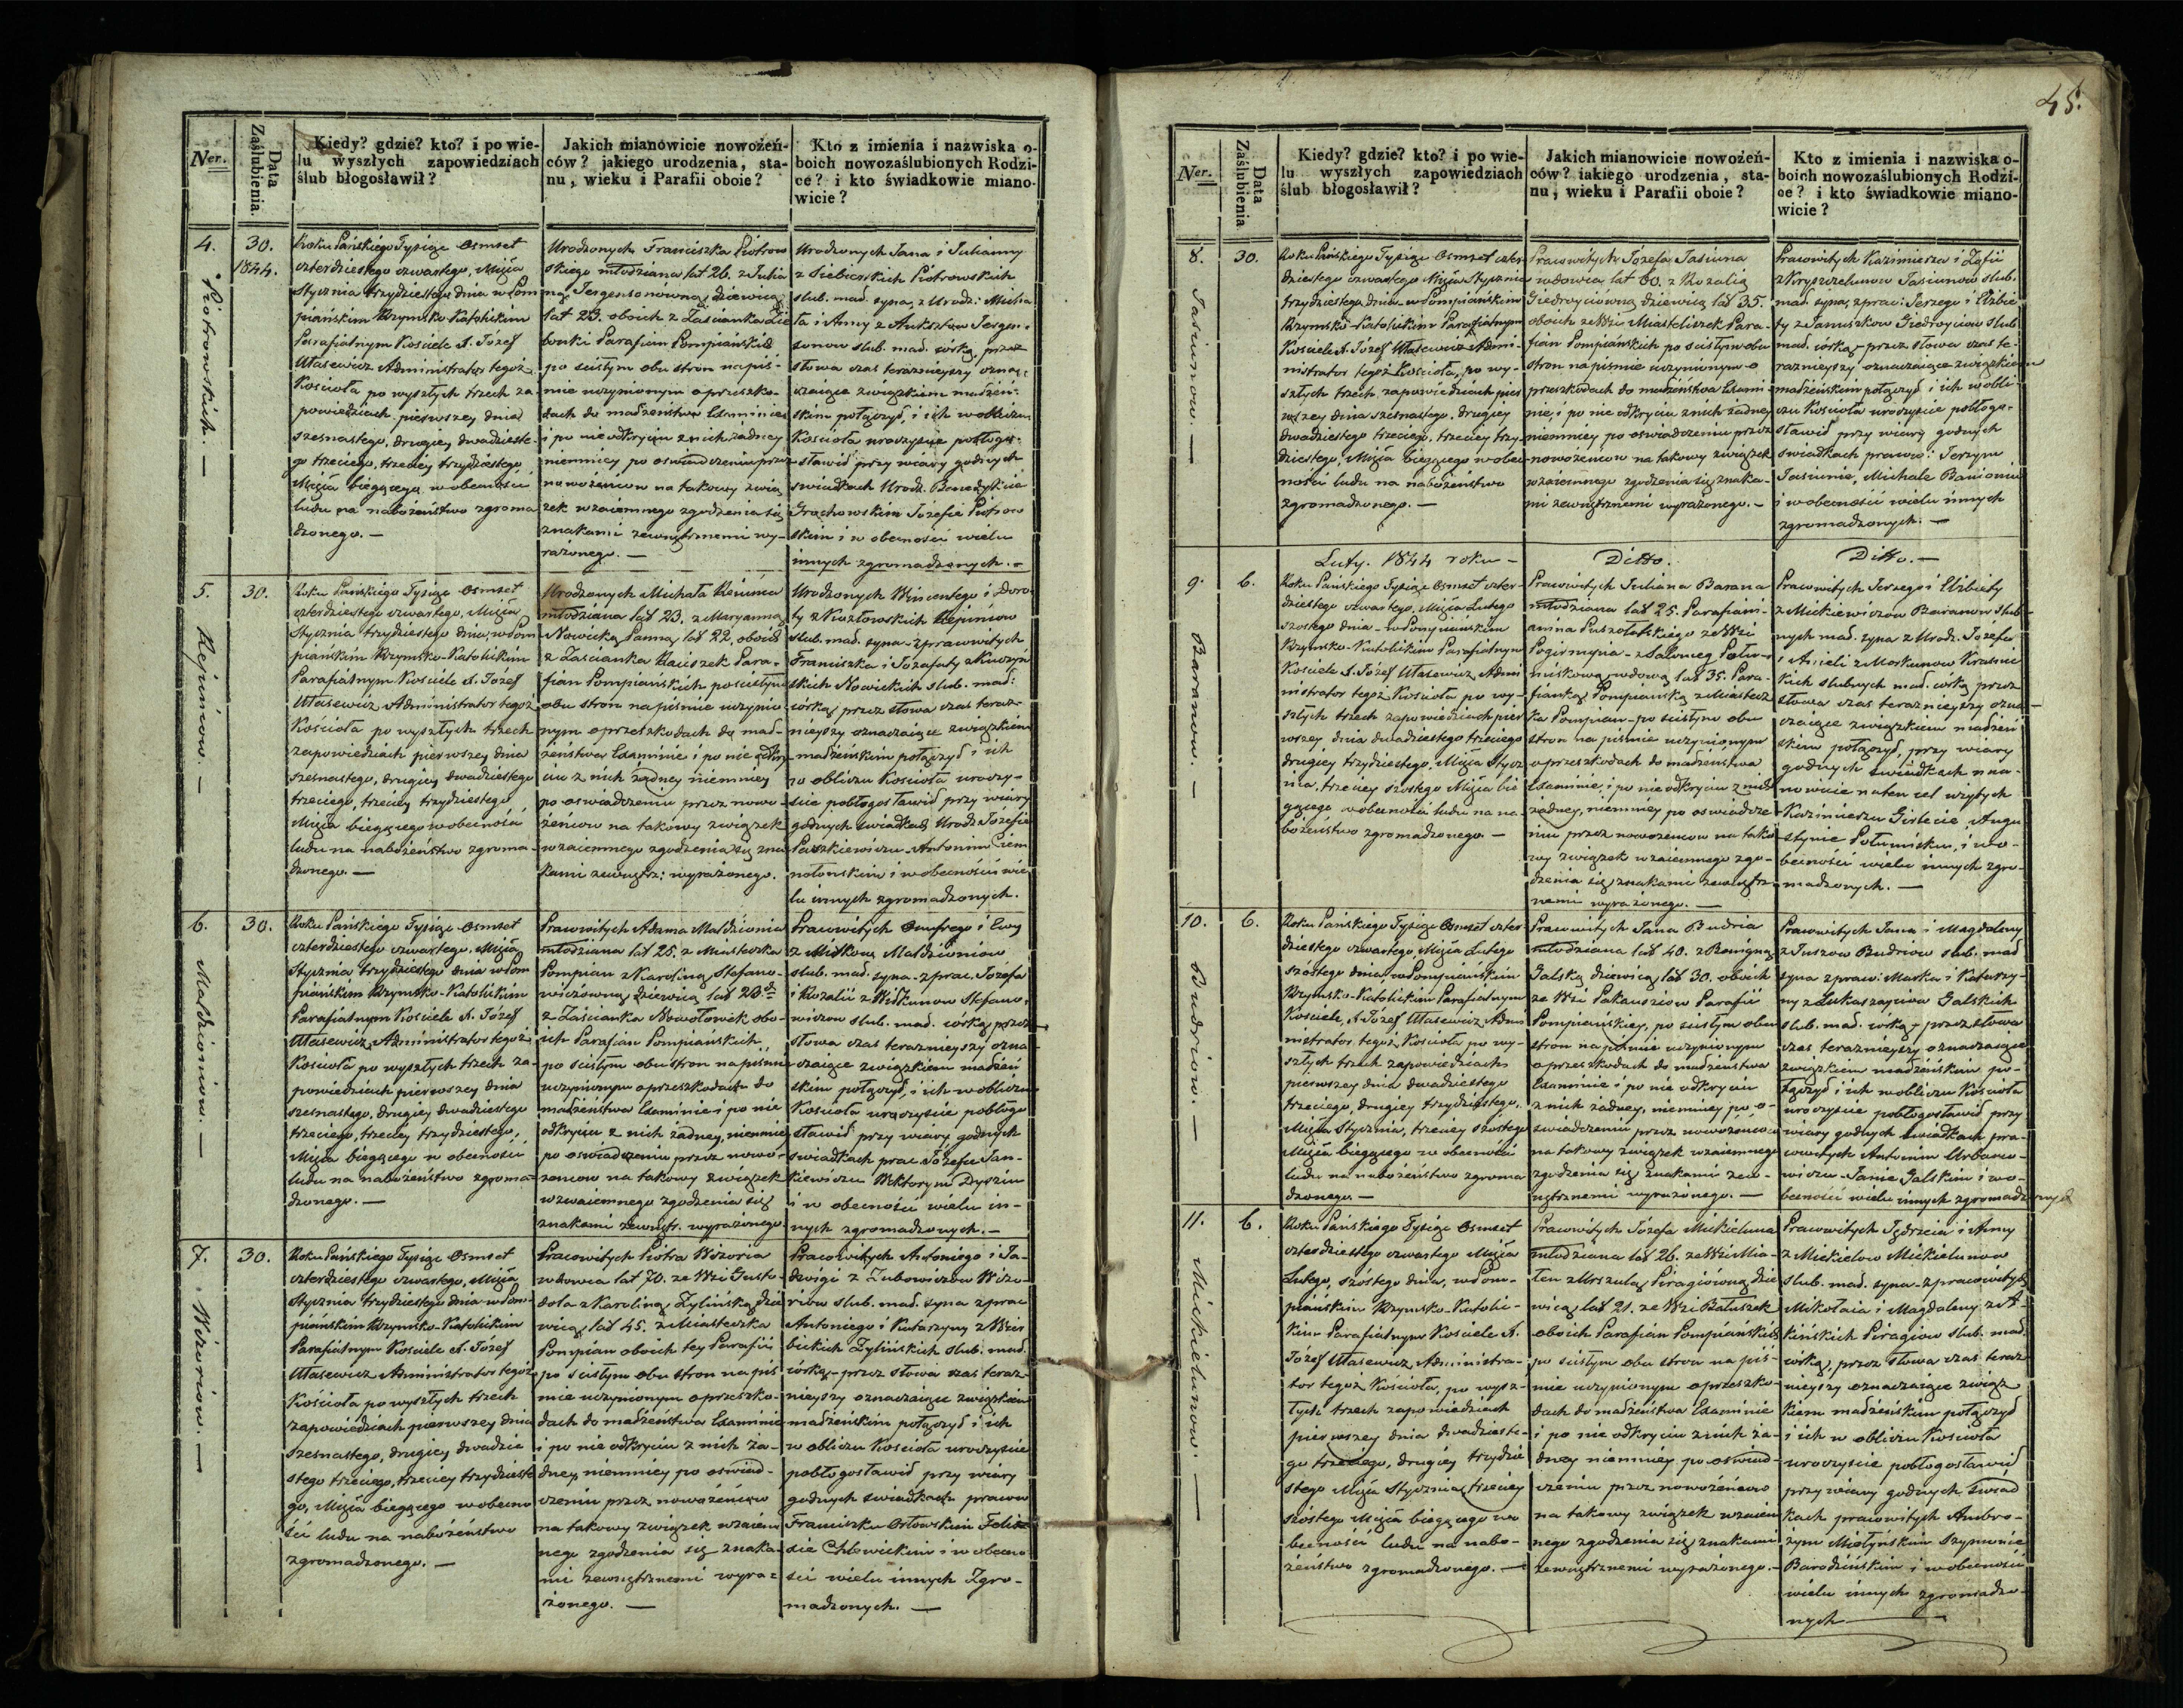 45.
Ner.
Data Zaślubienia.
Kiedy? gdzie? kto? i po wie-
lu wyszłych zapowiedziach
ślub błogosławił?
Jakich mianowicie nowożeń-
ców? jakiego urodzenia, sta-
nu, wieku i Parafii oboie?
Kto z imienia i nazwiska o-
boich nowozaślubionych Rodzi-
ce? i kto świadkowie miano-
wicie?
4.
Piotrowskich. —
30.
1844.
Roku Pańskiego Tysiąc Osmset
czterdziestego czwartego, Miesiąca
Stycznia trzydziestego dnia w Pom
piańskim Rzymsko-Katolickim
Parafialnym Kościele X. Józef
Ułasewicz Administrator tegoż
Kościoła po wyszłych trzech za
powiedziach pierwszey dnia
szesnastego, drugiey dwudzieste-
go trzeciego, trzeciey trzydziestego
Miesiąca bieżącego, w obecności
ludu na nabożeństwo zgroma
dzonego. —
Urodzonych Franciszka Piotrow
skiego młodziana lat 26. z Julia
ną Jergensonówną dziewicą
lat 23. oboich z Zaścianka
Parafian Pompiańskich
po ścisłym obu stron na piś-
mie uczynionym o przeszko-
dach do małżeństwa Examinie
i po nie odkryciu z nich żadney
niemniey po oświadczeniu przez
nowożeńcow na takowy zwią
zek wzaiemnego zgodzenia się
znakami zewnętrznemi wy-
rażonego. —
Urodzonych Jana i Julianny
z Piotrowskich
ślub. mał. syna, z Urodz: Micha
ła i Anny z Jergen-
sonow ślub. mał. córką, przez
słowa czas teraznieyszy ozna-
czaiące związkiem małżeń-
skim połączył, i ich w obliczu
Kościoła uroczyście pobłogo-
sławił przy wiary godnych
świadkach Urodz. Benedykcie
Grochowskim Józefie Piotrow
skim i w obecności wielu
innych zgromadzonych. —
5.
Repiniow. —
30.
Roku Pańskiego Tysiąc Osmset
czterdziestego czwartego, Miesiąca
Stycznia trzydziestego dnia, w Pom
piańskim Rzymsko-Katolickim
Parafialnym Kościele X. Józef
Ułasewicz Administrator tegoż
Kościoła po wyszłych trzech
zapowiedziach pierwszey dnia
szesnastego, drugiey dwudziestego
trzeciego, trzeciey trzydziestego
Miesiąca bieżącego w obecności
ludu na nabożeństwo zgroma-
dzonego. —
Urodzonych Michała Repinia
młodziana lat 23. z Maryanną
Nowicką Panną lat 22. oboich
z Zaścianka Para-
fian Pompiańskich po ścisłym
obu stron na piśmie uczynio
nym o przeszkodach do mał-
żeństwa Examinie i po nie odkry
ciu z nich żadney niemniey
po oświadczeniu przez nowo-
żeńcow na takowy związek
wzaiemnego zgodzenia się zna
kami zewnętrz: wyrażonego.
Urodzonych Wincentego i Doro
ty z Kozłowskich Repiniow
ślub. mał. syna - z prawowitych
Franciszka i Józefaty
skich Nowickich ślub. mał:
córką, przez słowa czas teraz-
nieyszy oznaczaiące związkiem
małżeńskim połączył i ich
w obliczu Kościoła uroczy-
ście pobłogosławił przy wiary
godnych świadkach Urodz: Józefie
Paszkiewiczu - Antonim
i w obecności wie
lu innych zgromadzonych.
6.
Małdziuniow. —
30.
Roku Pańskiego Tysiąc Osmset
czterdziestego czwartego, Miesiąca
Stycznia trzydziestego dnia w Pom
piańskim Rzymsko-Katolickim
Parafialnym Kościele X. Józef
Ułasewicz Administrator tegoż
Kościoła po wyszłych trzech za-
powiedziach pierwszey dnia
szesnastego, drugiey dwudziestego
trzeciego, trzeciey trzydziestego,
Miesiąca bieżącego w obecności
ludu na nabożeństwo zgroma-
dzonego. —
Pracowitych Adama Małdziunia
młodziana lat 25. z Miasteczka
Pompian z Karoliną Stefano-
wiczowną dziewicą lat 23
z Zaścianka obo-
ich Parafian Pompiańskich
po ścisłym obu stron na piśmie
uczynionym o przeszkodach do
małżeństwa Examinie i po nie
odkryciu z nich żadney, niemniey
po oświadczeniu przez nowo-
żeńcow na takowy związek
wzaiemnego zgodzenia się
znakami zewnętr. wyrażonego
Pracowitych Onufrego i Ewy
z Małdziuniow
ślub. mał. syna - z prac. Józefa
i Rozalii z Stefano-
wiczow ślub. mał. córką przez
słowa czas teraznieyszy ozna
czaiące związkiem małżeń
skim połączył, i ich w obliczu
Kościoła uroczyście pobłogo
sławił przy wiary godnych
świadkach prac. Józefie Jan-
kiewiczu Wiktorym
i w obecności wielu in-
nych zgromadzonych. —
7.
Wizoriow. —
30.
Roku Pańskiego Tysiąc Osmset
czterdziestego czwartego, Miesiąca
Stycznia trzydziestego dnia w Pom-
piańskim Rzymsko-Katolickim
Parafialnym Kościele X. Józef
Ułasewicz Administrator tegoż
Kościoła po wyszłych trzech
zapowiedziach pierwszey dnia
szesnastego, drugiey dwudzie
stego trzeciego, trzeciey trzydzieste
go, Miesiąca bieżącego w obecno
ści ludu na nabożeństwo
zgromadzonego. —
Pracowitych Piotra Wizoria
wdowca lat 70. ze Wsi
z Karoliną Żylińską dzie
wicą lat 45. z Miasteczka
Pompian oboich tey Parafii
po ścisłym obu stron na piś
mie uczynionym o przeszko-
dach do małżeństwa Examinie
i po nie odkryciu z nich ża-
dney, niemniey po oświad-
czeniu przez nowożeńcow
na takowy związek wzaiem
nego zgodzenia się znaka-
mi zewnętrznemi wyra-
żonego. —
Pracowitych Antoniego i Ja-
dwigi z Zubowiczow Wizo-
riow ślub. mał. syna z prac
Antoniego i Katarzyny z
bickich Żylińskich ślub. mał.
córką - przez słowa czas teraz-
nieyszy oznaczaiące związkiem
małżeńskim połączył i ich
w obliczu Kościoła uroczyście
pobłogosławił przy wiary
godnych świadkach pracow
Franciszku Orłowskim
Chlewickim i w obecno
ści wielu innych zgro-
madzonych. —
Ner.
Data Zaślubienia
Kiedy? gdzie? kto? i po wie-
lu wyszłych zapowiedziach
ślub błogosławił?
Jakich mianowicie nowożeń-
ców? iakiego urodzenia, sta-
nu, wieku i Parafii oboie?
Kto z imienia i nazwiska o-
boich nowozaślubionych Rodzi-
ce? i kto świadkowie miano-
wicie?
8.
Jasiunow. —
30.
Roku Pańskiego Tysiąc Osmset czter
dziestego czwartego Miesiąca Stycznia
trzydziestego dnia - w Pompiańskim
Rzymsko-Katolickim Parafialnym
Kościele X. Józef Ułasewicz Admi-
nistrator tegoż Kościoła, po wy-
szłych trzech zapowiedziach pier
wszey dnia szesnastego, drugiey
dwudziestego trzeciego, trzeciey trzy-
dziestego, Miesiąca bieżącego w obec
ności ludu na nabożeństwo
zgromadzonego. —
Pracowitych Józefa Jasiuna
wdowca lat 60. z Rozalią
Giedroyciowną dziewicą lat 35.
oboich ze Wsi Miasteliszek Para-
fian Pompiańskich po ścisłym obu
stron na piśmie uczynionym o
przeszkodach do małżeństwa Exami-
nie, i po nie odkryciu z nich żadney
niemniey po oświadczeniu przez
nowożeńcow na takowy związek
wzaiemnego zgodzenia się znaka-
mi zewnętrznemi wyrażonego. —
Pracowitych Kazimierza i Zofii
z Jasiunow ślub.
mał. syna, z prac: Jerzego i Elżbie
ty z Januszkow Giedroyciow ślub
mał. córką - przez słowa czas te-
raznieyszy oznaczaiące związkiem
małżeńskim połączył i ich w obli-
czu Kościoła uroczyście pobłogo-
sławił przy wiary godnych
świadkach pracow: Jerzym
Jasiunie, Michale
i w obecności wielu innych
zgromadzonych. —
Luty. 1844 roku —
Ditto.
Ditto. —
9.
Baranow. —
6.
Roku Pańskiego Tysiąc Osmset czter-
dziestego czwartego, Miesiąca Lutego
szostego dnia - w Pompiańskim
Rzymsko-Katolickim Parafialnym
Kościele X. Józef Ułasewicz Admi
nistrator tegoż Kościoła po wy-
szłych trzech zapowiedziach pier
wszey dnia dwudziestego trzeciego
drugiey trzydziestego, Miesiąca Stycz
nia, trzeciey szostego Miesiąca bie
żącego w obecności ludu na na-
bożeństwo zgromadzonego. —
Pracowitych Juliana Barana
młodziana lat 25. Parafiani-
anina ze Wsi
z Salomeą
wdową lat 35. Para-
fianką Pompiańską z Miastecz
ka Pompian - po ścisłym obu
stron na piśmie uczynionym
o przeszkodach do małżeństwa
Examinie, i po nie odkryciu z nich
żadney, niemniey po oświadcze
niu przez nowożeńcow na tako
wy związek wzaiemnego zgo-
dzenia się znakami zewnętrz
nemi wyrażonego. —
Pracowitych Jerzego i Elżbiety
z Mickiewiczow Baranow ślub-
nych mał. syna z Urodz. Józefa
i Anieli z Moskunow
kich ślubnych mał. córką przez
słowa czas teraznieyszy ozna-
czaiące związkiem małżeń
skim połączył, przy wiary
godnych świadkach mia-
nowicie na ten cel wzytych
Kazimierzu Augu
stynie i w o-
becności wielu innych zgro-
madzonych. —
10.
Budriow. —
6.
Roku Pańskiego Tysiąc Osmset czter
dziestego czwartego Miesiąca Lutego
szóstego dnia, w Pompiańskim
Rzymsko-Katolickim Parafialnym
Kościele, X. Józef Ułasewicz Admi
nistrator tegoż Kościoła po wy-
szłych trzech zapowiedziach
pierwszey dnia dwudziestego
trzeciego, drugiey trzydziestego,
Miesiąca Stycznia, trzeciey szostego
Miesiąca bieżącego w obecności
ludu na nabożeństwo zgroma
dzonego. —
Pracowitych Jana Budria
młodziana lat 40. z Benigną
Galską dziewicą lat 30. oboich
ze Wsi Parafii
Pompiańskiey, po ścisłym obu
stron na piśmie uczynionym
o przeszkodach do małżeństwa
Examinie i po nie odkryciu
z nich żadney, niemniey po o-
świadczeniu przez nowożeńcow
na takowy związek wzaiemnego
zgodzenia się znakami zew-
nętrznemi wyrażonego. —
Pracowitych Jana i Magdaleny
z Budriow ślub. mał
syna z prac: Marka i Katarzy-
ny z Galskich
ślub. mał. córką - przez słowa
czas teraznieyszy oznaczaiące
związkiem małżeńskim po-
łączył i ich w obliczu Kościoła
uroczyście pobłogosławił przy
wiary godnych świadkach pra-
cowitych Antonim Urbano-
wiczu - Janie Galskim i w o-
becności wielu innych zgromadzonych
11.
Mickielunow. —
6.
Roku Pańskiego Tysiąc Osmset
czterdziestego czwartego Miesiąca
Lutego, szóstego dnia, w Pom-
piańskim Rzymsko-Katolic-
kim Parafialnym Kościele X.
Józef Ułasewicz Administra-
tor tegoż Kościoła, po wysz-
łych trzech zapowiedziach
pierwszey dnia dwudzieste-
go trzeciego, drugiey trzydzie
stego Miesiąca Stycznia, trzeciey
szostego Miesiąca bieżącego w o
becności ludu na nabo-
żeństwo zgromadzonego. —
Pracowitych Józefa Mickieluna
młodziana lat 26. ze Wsi
z Urszulą Piragiówną dzie
wicą lat 21. ze Wsi Batuszek
oboich Parafian Pompiańskich
po ścisłym obu stron na piś-
mie uczynionym o przeszko-
dach do małżeństwa Examinie
i po nie odkryciu z nich ża-
dney niemniey po oświad-
czeniu przez nowożeńcow
na takowy związek wzaiem
nego zgodzenia się znakami
zewnętrznemi wyrażonego. —
Pracowitych Jędrzeia i Anny
z Mickielunow
ślub. mał. syna - z pracowitych
Mikołaia i Magdaleny
Piragiow ślub. mał
córką, przez słowa czas teraz
nieyszy oznaczaiące związ
kiem małżeńskim połączył
i ich w obliczu Kościoła
uroczyście pobłogosławił
przy wiary godnych świad
kach pracowitych Ambro-
żym Szymonie
i w obecności
wielu innych zgromadzo-
nych —